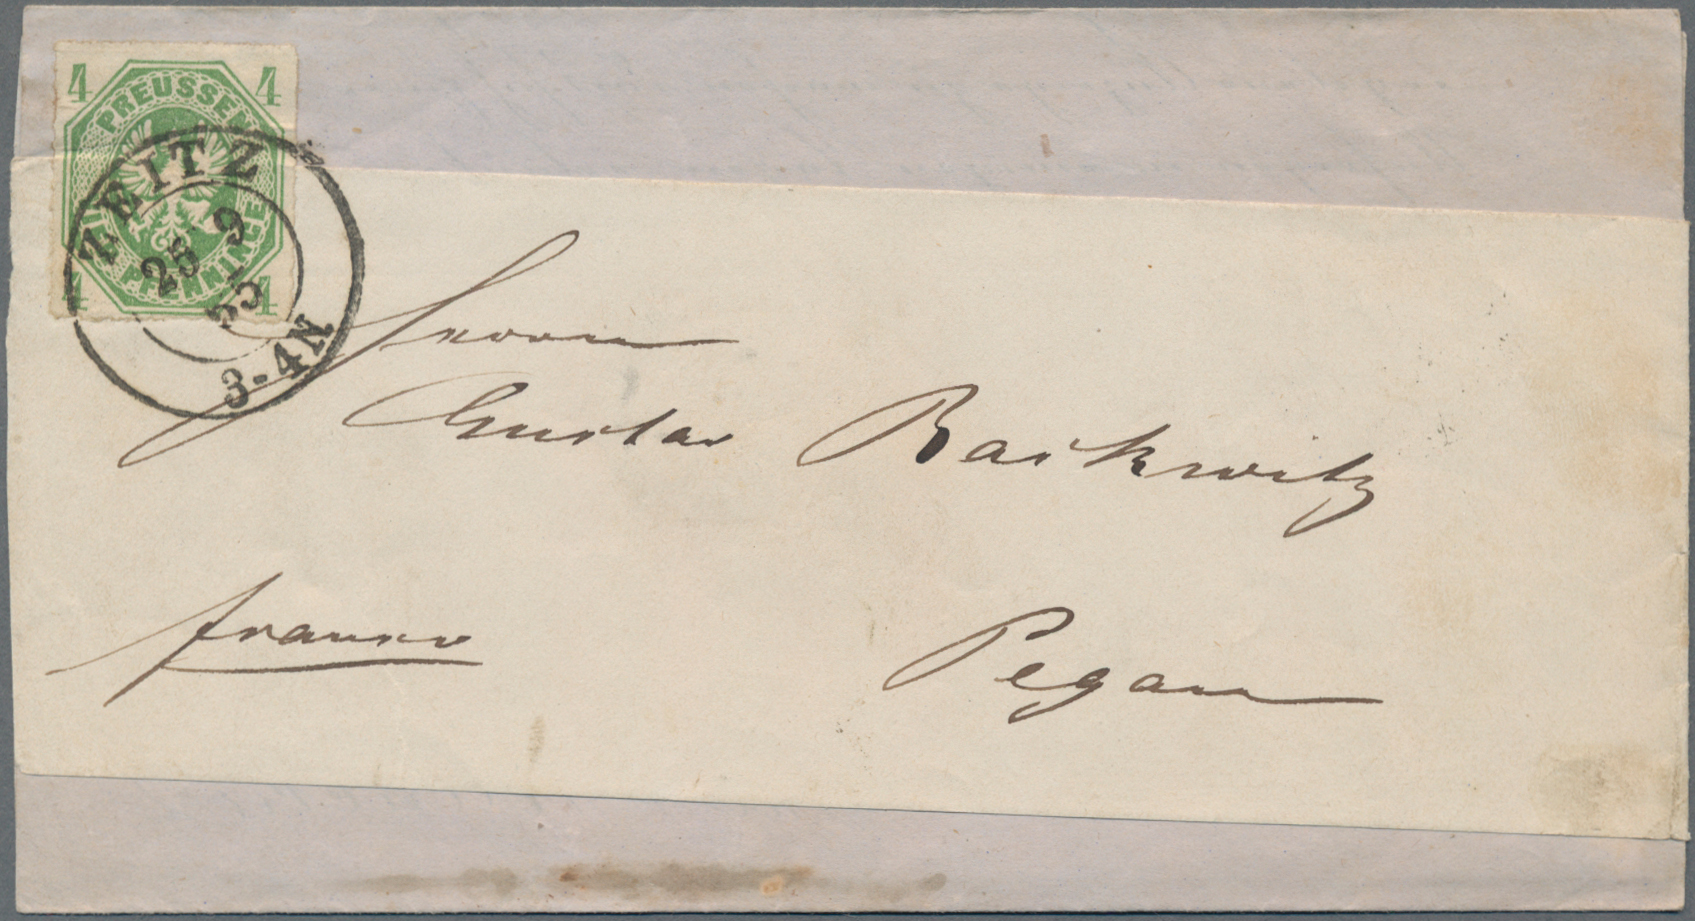 4 4
PREUSSEN
PFENNINGE
4 4
ZEITZ
28 9
3-4N
Herrn
Gustav Backwitz
franco
Pegau